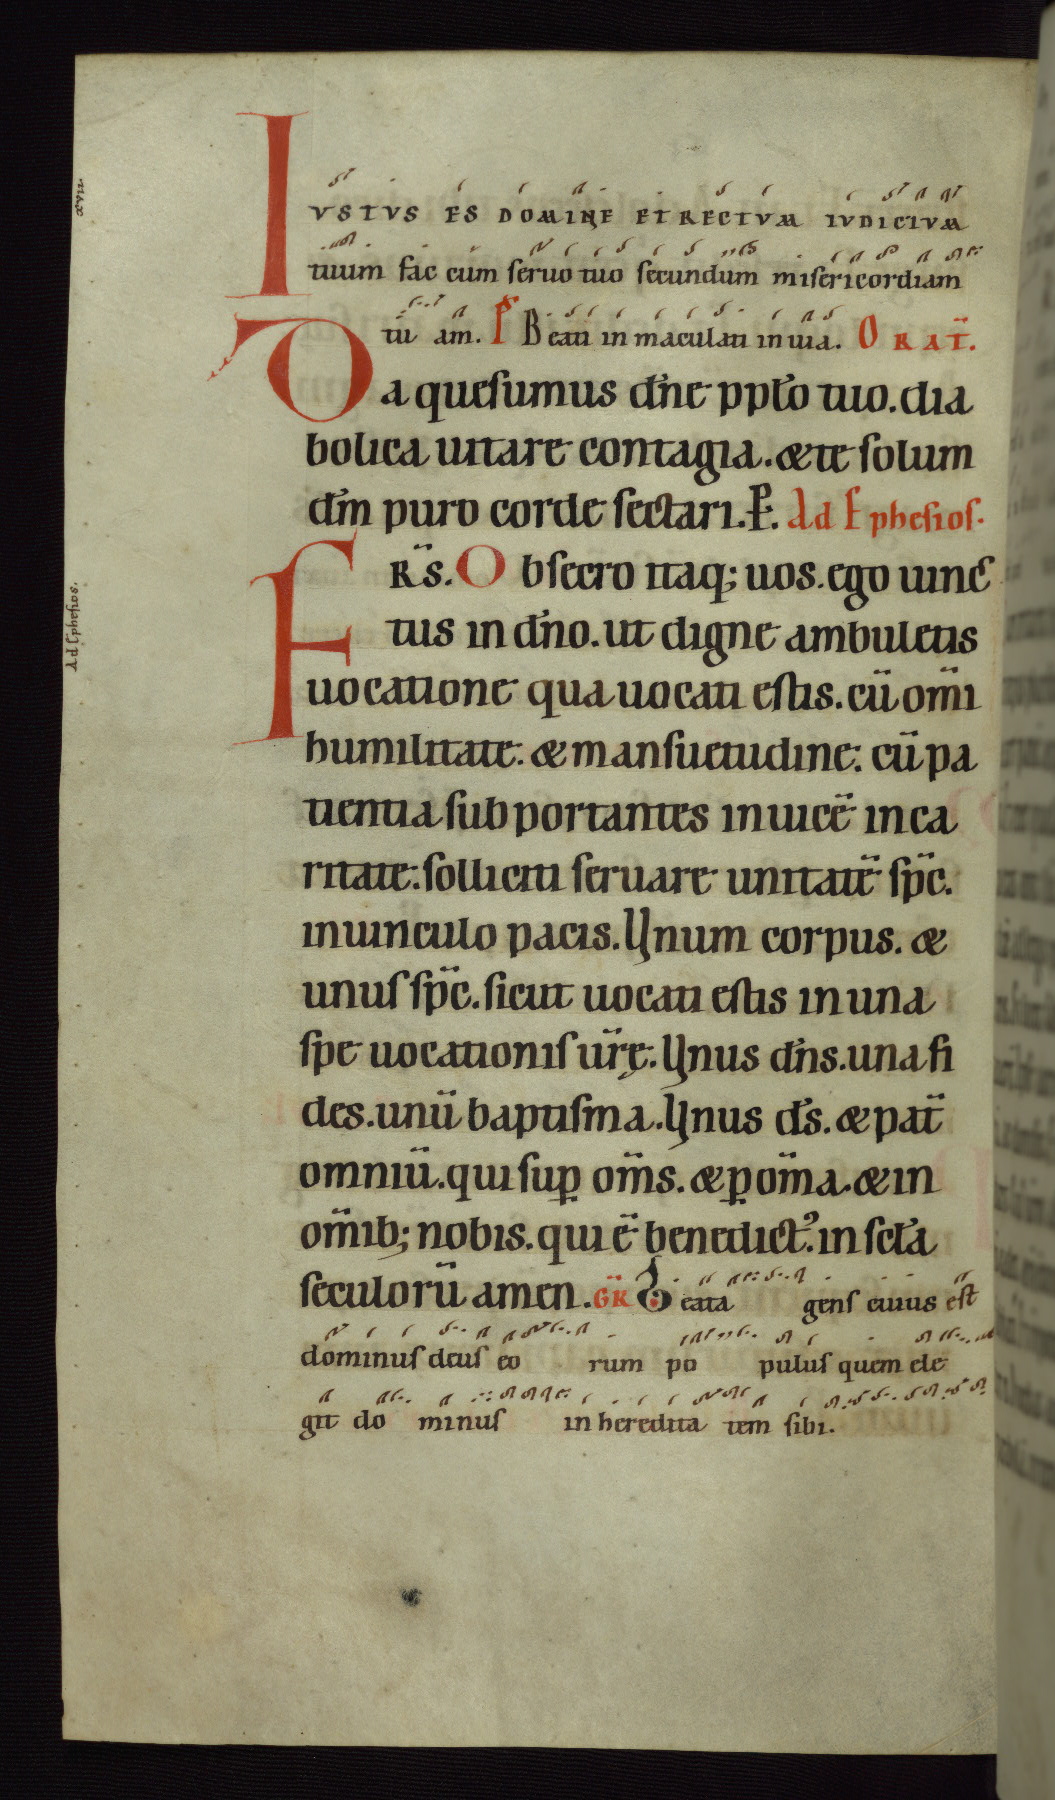 IVSTVS ES DOMINE ET RECTVM IVDICIVM
tuum fac cum seruo tuo secundum misericordiam
tuā am. Ps Beati in maculati in uia. ORAT̄.
Da quesumus dn̄e pplō tuo. dia
bolica uitare contagia. & te solum
dm̄ puro corde sectari. E. Ad Ephesios.
FRS̄. Obsecro itaq; uos. ego uinc
tus in dn̄o. ut digne ambuletis
uocatione qua uocati estis. cū om̄i
humilitate. & mansuetudine. cū pa
tientia subportantes inuicē in ca
ritate. solliciti seruare unitatē sp̄c.
in uinculo pacis. Vnum corpus. &
unus sp̄c. sicut uocati estis in una
spe uocationis ur̄ę. Vnus dn̄s. una fi
des. unū baptisma. Vnus ds̄. & pat̄
omniū. qui sup̲ om̄s. & p̲ om̄a. & in
om̄ib; nobis. qui ē benedict⁹. in sc̄la
seculorū amen. GR̄ Beata gens cuius est
dominus deus eo rum po pulus quem ele
git do minus in heredita tem sibi.
xvii.
Ad Ephesios.